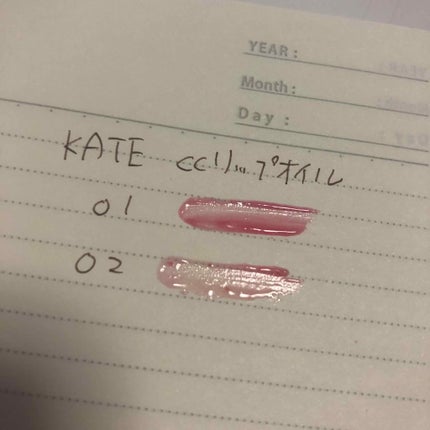 YEAR :
Month :
Day :
KATE CCリップオイル
01
02